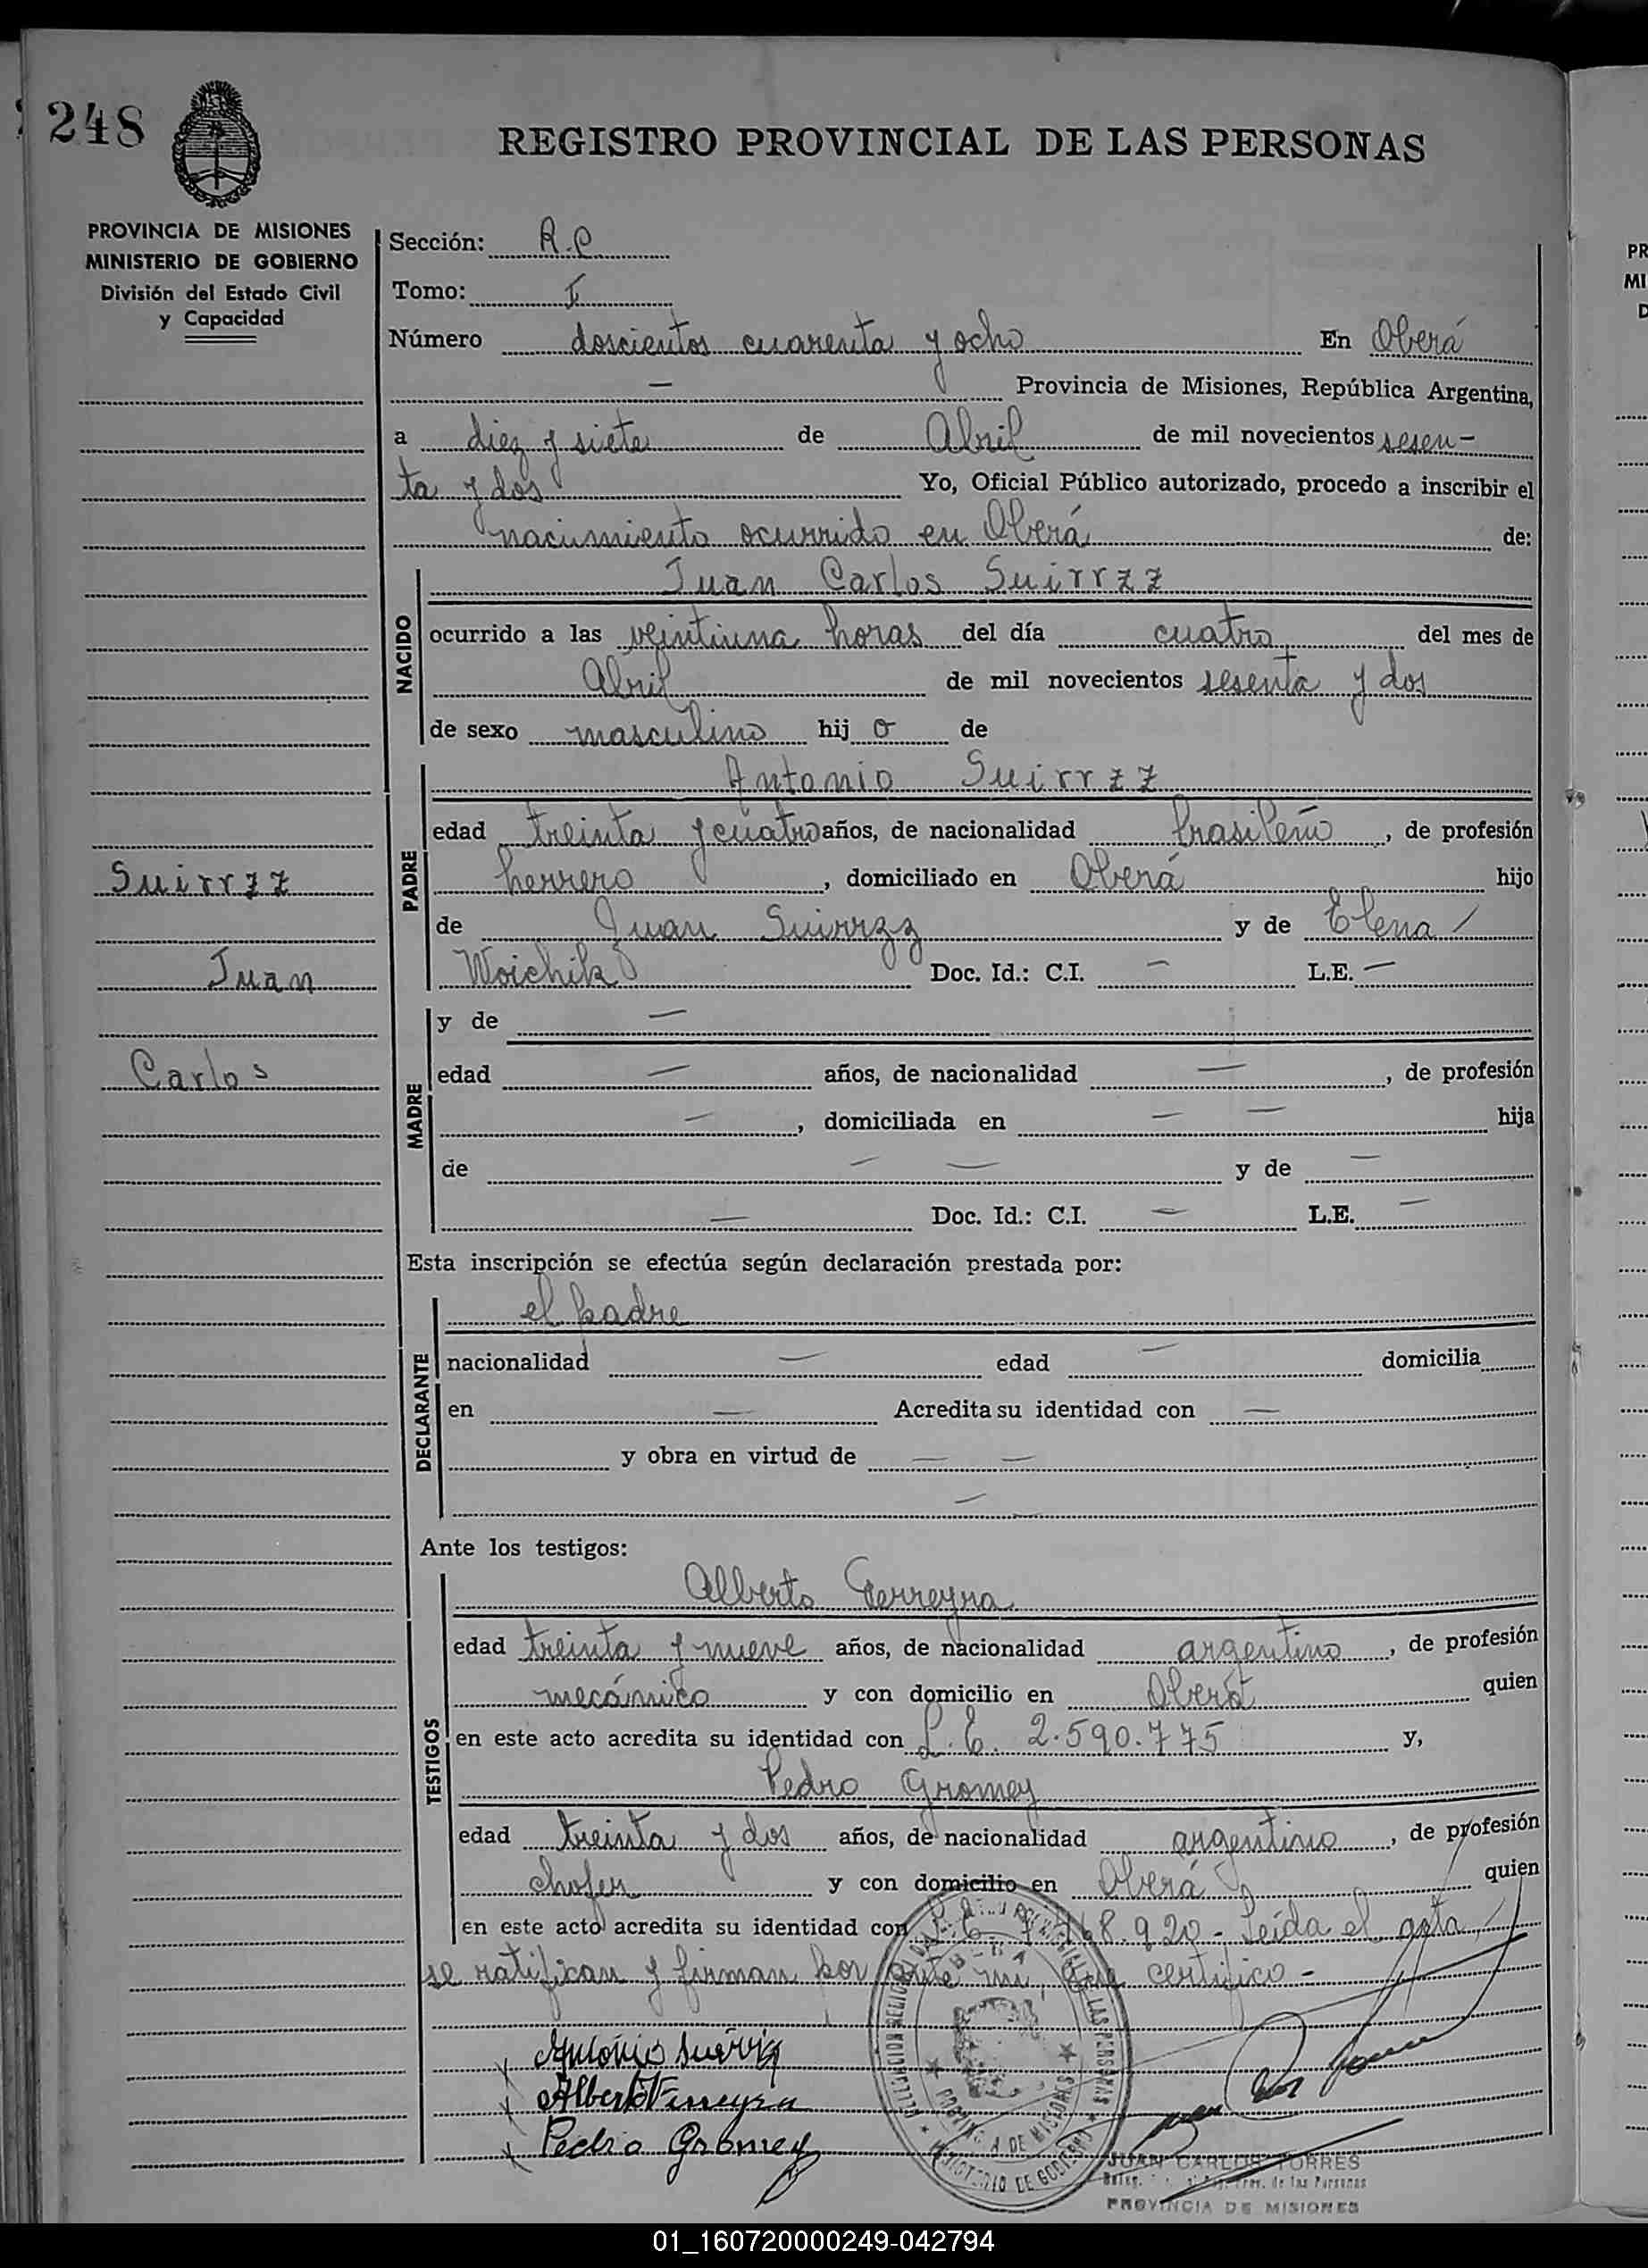 248
REGISTRO PROVINCIAL DE LAS PERSONAS
PROVINCIA DE MISIONES
MINISTERIO DE GOBIERNO
División del Estado Civil
y Capacidad
Sección: R.C
Tomo: I
Número doscientos cuarenta y ocho En Oberá
— Provincia de Misiones, República Argentina,
a diez y siete de Abril de mil novecientos sesen-
ta y dos Yo, Oficial Público autorizado, procedo a inscribir el
nacimiento ocurrido en Oberá de:
NACIDO
Juan Carlos Suirrzz
ocurrido a las veintiuna horas del día cuatro del mes de
Abril de mil novecientos sesenta y dos
de sexo masculino hij o de
PADRE
Antonio Suirrzz
edad treinta y cuatro años, de nacionalidad brasileño, de profesión
herrero, domiciliado en Oberá hijo
de Juan Suirrzz y de Elena /
Woichik Doc. Id.: C.I. — L.E. —
Suirrzz
Juan
Carlos
MADRE
y de —
edad — años, de nacionalidad —, de profesión
—, domiciliada en — — hija
de — — y de —
— Doc. Id.: C.I. — L.E. —
Esta inscripción se efectúa según declaración prestada por:
DECLARANTE
el padre
nacionalidad — edad — domicilia
en — Acredita su identidad con —
y obra en virtud de — —
—
Ante los testigos:
TESTIGOS
Alberto Ferreyra
edad treinta y nueve años, de nacionalidad argentino, de profesión
mecánico y con domicilio en Oberá quien
en este acto acredita su identidad con L.E. 2.590.775 y,
Pedro Gromey
edad treinta y dos años, de nacionalidad argentino, de profesión
chofer y con domicilio en Oberá quien
en este acto acredita su identidad con L.E. 68.920 - Leída el acta
se ratifican y firman por ante mí que certifico -
Antonio
Alberto Ferreyra
Pedro Gromey
JUAN CARLOS TORRES
de las Personas
PROVINCIA DE MISIONES
01_160720000249-042794